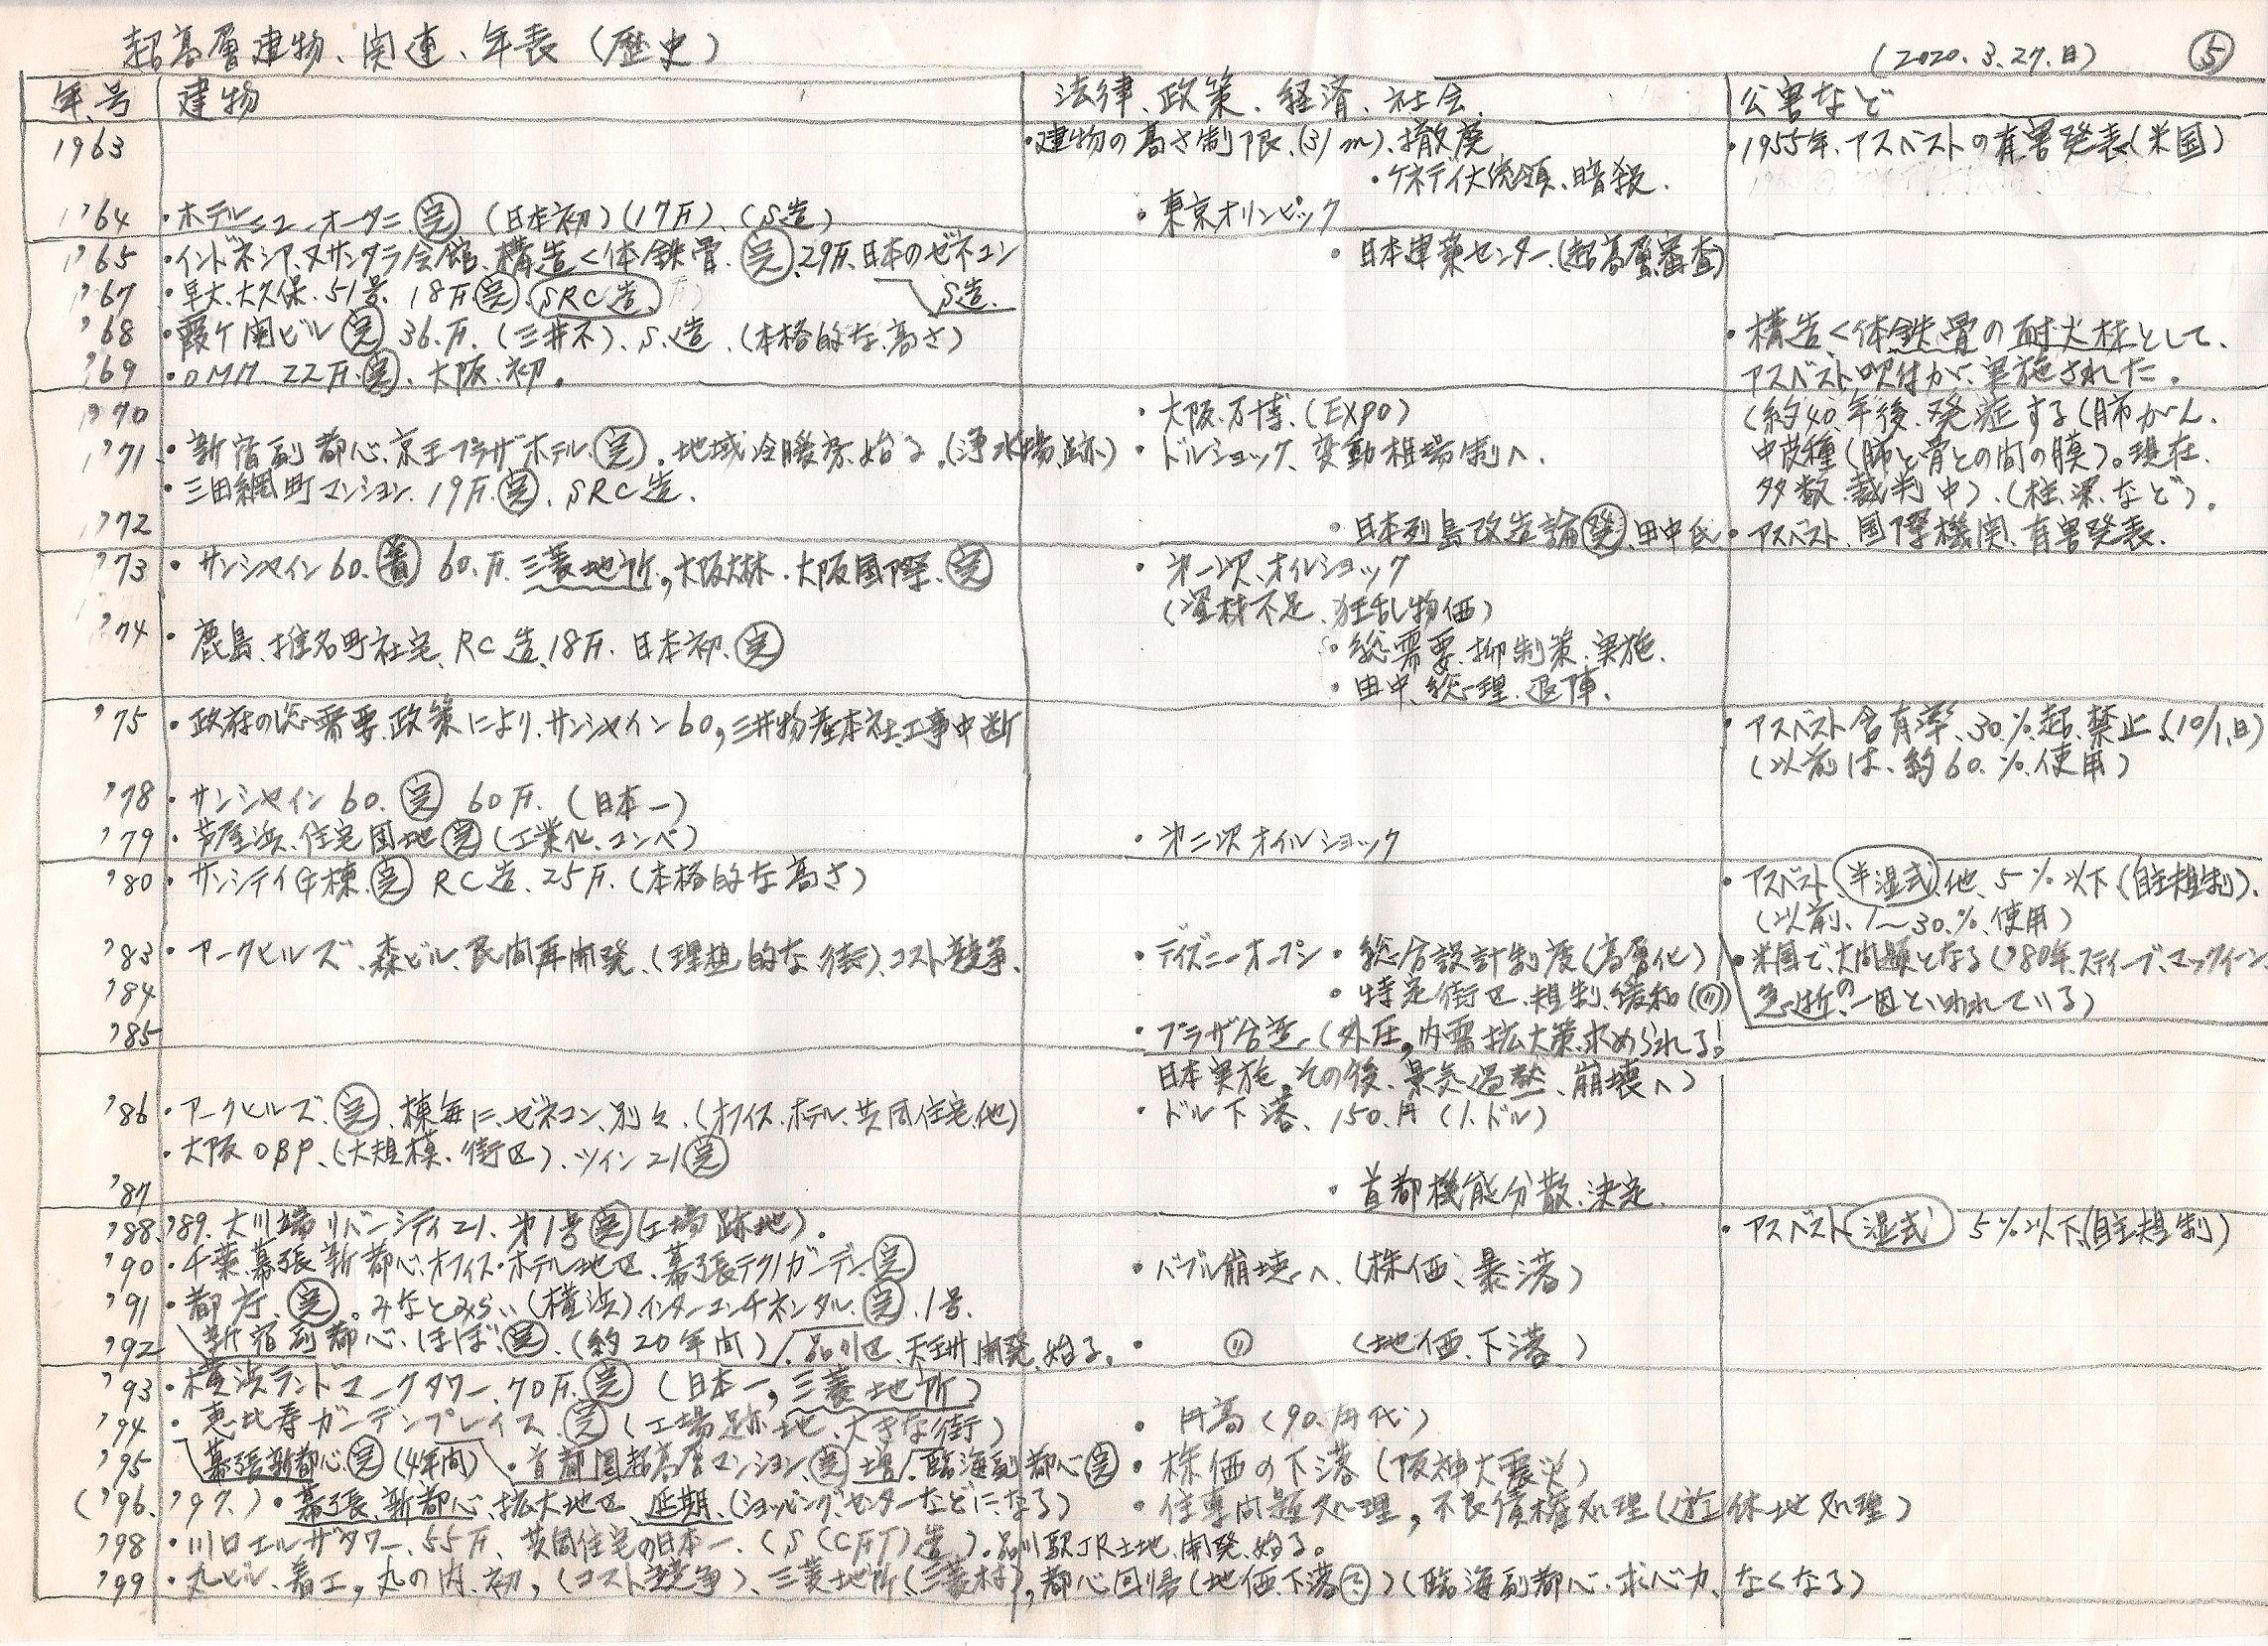 超高層建物、関連、年表（歴史）
（2020.3.27.日） ⑤
年号 建物 法律、政策、経済、社会、 公害など
1963 ・建物の高さ制限、(31m)、撤廃 ・1955年、アスベストの有害発表(米国)
・ケネディ大統領、暗殺、
1'64 ・ホテルニューオータニ 完 (日本初)(17F)、(S造) ・東京オリンピック
1'65 ・インドネシア、ヌサンタラ会館、構造く体鉄骨、完、29F、日本のゼネコン ・日本建築センター、(超高層審査)
'67 ・早大、大久保、51号、18F 完、SRC造、 S造、
'68 ・霞ケ関ビル 完 36.F、(三井不)、S、造、(本格的な、高さ) ・構造く体鉄骨の耐火材として、
'69 ・OMM、22F、完、大阪、初。 アスベスト吹付が、実施された。
1970 ・大阪、万博、(EXPO) (約40、年後、発症する(肺がん、
1'71 ・新宿副都心、京王プラザホテル、完、地域冷暖房、始る、(浄水場、跡) ・ドルショック、変動相場制へ、 中皮種(肺と骨との間の膜)。現在、
・三田綱町マンション、19F、完、SRC造、 多数、裁判中)、(柱、梁、など)。
1'72 ・日本列島改造論 発、田中氏 ・アスベスト、国際機関、有害発表、
'73 ・サンシャイン60、着 60.F、三菱地所、大阪大林、大阪国際、完 ・第一次、オイルショック
(資材不足、狂乱物価)
'74 ・鹿島、椎名町社宅、RC造、18F、日本初、完
・総需要、抑制策、実施、
・田中、総理、退陣、
'75 ・政府の総需要、政策により、サンシャイン60、三井物産本社、工事中断 ・アスベスト含有率、30.%、超、禁止、(10/1、日)
(以前は、約60.%、使用)
'78 ・サンシャイン60、完 60F、(日本一)
'79 ・芦屋浜、住宅団地 完 (工業化、コンペ) ・第二次オイルショック
'80 ・サンシティG棟、完 RC造、25F、(本格的な高さ) ・アスベスト、半湿式、他、5%以下、(自主規制)、
(以前、1〜30.%、使用)
'83 ・アークヒルズ、森ビル、民間再開発、(理想的な街)、コスト競争、 ・ディズニーオープン ・総合設計制度(高層化) ・米国で、大問題となる('80年、スティーブ、マックイーン
'84 ・特定街区、規制、緩和(〃) 急逝の一因といわれている)
'85 ・プラザ合意、(外圧、内需拡大策、求められる!
日本実施、その後、景気過熱、崩壊へ)
'86 ・アークヒルズ、完、棟毎に、ゼネコン、別々、(オフィス、ホテル、共同住宅、他) ・ドル下落、150.円(1.ドル)
・大阪OBP、(大規模、街区)、ツイン21 完
'87 ・首都機能分散、決定、
'88、'89、大川端リバーシティ21、第1号 完 (工場跡地)。 ・アスベスト 湿式 5%以下、(自主規制)
'90 ・千葉、幕張新都心、オフィス・ホテル地区、幕張テクノガーデン、完 ・バブル崩壊へ、(株価、暴落)
'91 ・都庁、完。みなとみらい(横浜)、インターコンチネンタル、完、1号、
'92 新宿副都心、ほぼ、完、(約20年間)、品川区、天王洲、開発、始る、 ・〃 (地価、下落)
'93 ・横浜ランドマークタワー、70F、完 (日本一、三菱地所)
'94 ・恵比寿ガーデンプレイス、完 (工場跡地、大きな街) ・円高(90.円代)
'95 幕張新都心、完 (4年間) ・首都圏超高層マンション、完 増、臨海副都心 完 ・株価の下落(阪神大震災)
('96、'97、)・幕張、新都心、拡大地区、延期、(ショッピングセンターなどになる) ・住専問題処理、不良債権処理(遊休地処理)
'98 ・川口エルザタワー、55F、共同住宅の日本一、(S(CFT)造)。品川駅JR土地、開発、始る。
'99 ・丸ビル、着工、丸の内、初、(コスト競争)、三菱地所(三菱村)、都心回帰(地価、下落)(臨海副都心、求心力、なくなる)